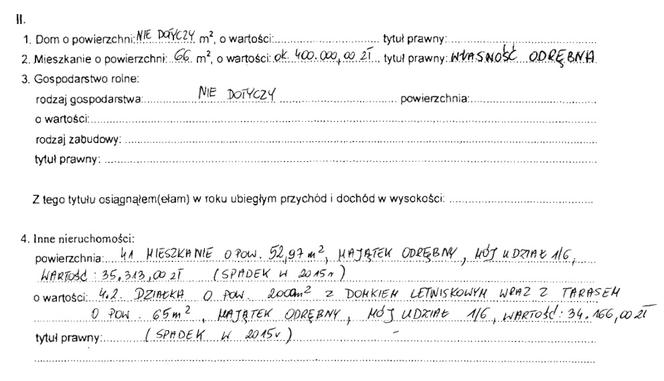 II.
1. Dom o powierzchni: NIE DOTYCZY m², o wartości: tytuł prawny:
2. Mieszkanie o powierzchni: 66 m², o wartości: ok. 400.000,00 zł tytuł prawny: WŁASNOŚĆ ODRĘBNA
3. Gospodarstwo rolne:
rodzaj gospodarstwa: NIE DOTYCZY powierzchnia:
o wartości:
rodzaj zabudowy:
tytuł prawny:
Z tego tytułu osiągnąłem(ęłam) w roku ubiegłym przychód i dochód w wysokości:
4. Inne nieruchomości:
powierzchnia: 4.1 MIESZKANIE O POW. 52,97 m², MAJĄTEK ODRĘBNY, MÓJ UDZIAŁ 1/6,
WARTOŚĆ: 35.313,00 zł (SPADEK W 2015r)
o wartości: 4.2. DZIAŁKA O POW. 2000m² Z DOMKIEM LETNISKOWYM WRAZ Z TARASEM
O POW. 65m², MAJĄTEK ODRĘBNY, MÓJ UDZIAŁ 1/6, WARTOŚĆ: 34.166,00 zł
tytuł prawny: (SPADEK W 2015r)